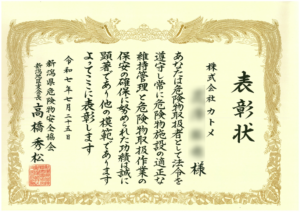 表彰状
株式会社 カトメ
様
あなたは危険物取扱者として法令を
遵守し常に危険物施設の適正な
維持管理と危険物取扱作業の
保安の確保に努められた功績は誠に
顕著であり他の模範であります
よってここに表彰します
令和七年七月二十五日
新潟県危険物安全協会
新潟支部支部長 高橋秀松